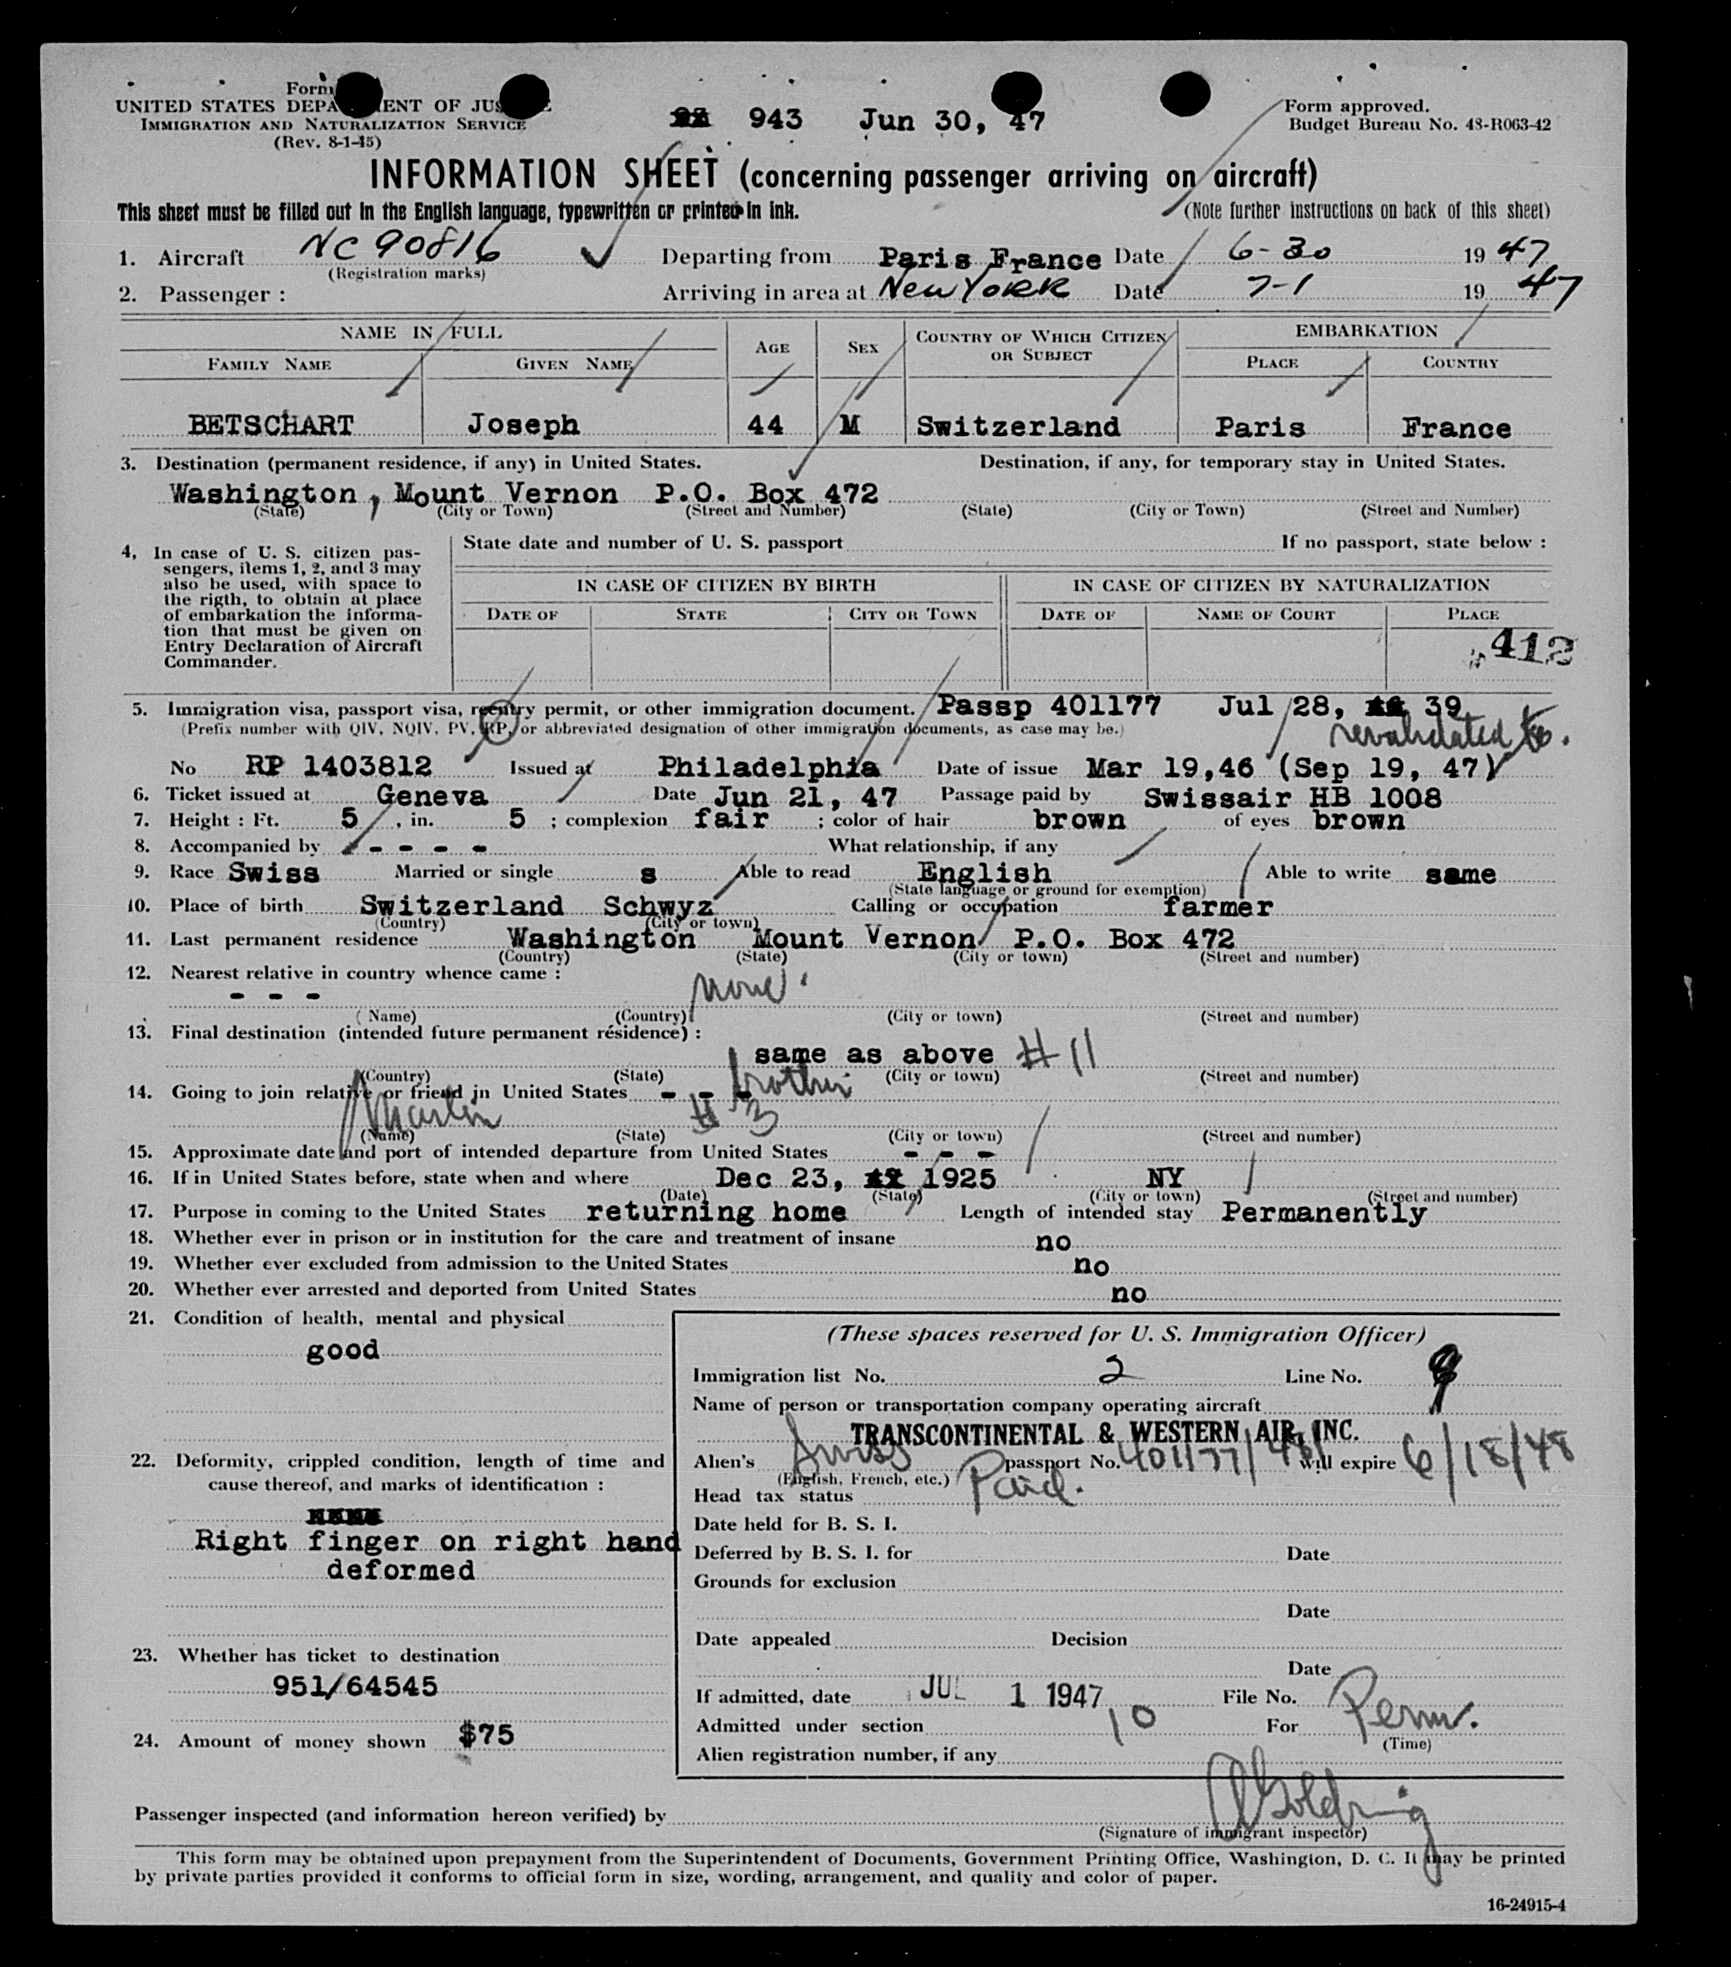 Form
UNITED STATES DEPA ENT OF JUS E
IMMIGRATION AND NATURALIZATION SERVICE
(Rev. 8-1-45)
943 Jun 30, 47
Form approved.
Budget Bureau No. 43-R063-42
INFORMATION SHEET (concerning passenger arriving on aircraft)
This sheet must be filled out in the English language, typewritten or printed in ink.
(Note further instructions on back of this sheet)
1. Aircraft NC 90816 Departing from Paris France Date 6-30 1947
(Registration marks)
2. Passenger : Arriving in area at New York Date 7-1 1947
NAME IN FULL AGE SEX COUNTRY OF WHICH CITIZEN OR SUBJECT EMBARKATION
FAMILY NAME GIVEN NAME PLACE COUNTRY
BETSCHART Joseph 44 M Switzerland Paris France
3. Destination (permanent residence, if any) in United States. Destination, if any, for temporary stay in United States.
Washington, Mount Vernon P.O. Box 472
(State) (City or Town) (Street and Number) (State) (City or Town) (Street and Number)
4, In case of U. S. citizen pas-
sengers, items 1, 2, and 3 may
also be used, with space to
the rigth, to obtain at place
of embarkation the informa-
tion that must be given on
Entry Declaration of Aircraft
Commander.
State date and number of U. S. passport If no passport, state below :
IN CASE OF CITIZEN BY BIRTH IN CASE OF CITIZEN BY NATURALIZATION
DATE OF STATE CITY OR TOWN DATE OF NAME OF COURT PLACE
412
5. Immigration visa, passport visa, reentry permit, or other immigration document. Passp 401177 Jul 28, 39
(Prefix number with QIV, NQIV, PV, RP, or abbreviated designation of other immigration documents, as case may be.) revalidated to.
No RP 1403812 Issued at Philadelphia Date of issue Mar 19,46 (Sep 19, 47)
6. Ticket issued at Geneva Date Jun 21, 47 Passage paid by Swissair HB 1008
7. Height : Ft. 5 , in. 5 ; complexion fair ; color of hair brown of eyes brown
8. Accompanied by - - - - What relationship, if any
9. Race Swiss Married or single s Able to read English Able to write same
(State language or ground for exemption)
10. Place of birth Switzerland Schwyz Calling or occupation farmer
(Country) (City or town)
11. Last permanent residence Washington Mount Vernon P.O. Box 472
(Country) (State) (City or town) (Street and number)
12. Nearest relative in country whence came :
- - - none.
( Name) (Country) (City or town) (Street and number)
13. Final destination (intended future permanent résidence) :
same as above # 11
(Country) (State) (City or town) (Street and number)
14. Going to join relative or friend in United States - - - brother
Martin # 3
(Name) (State) (City or town) (Street and number)
15. Approximate date and port of intended departure from United States - - -
16. If in United States before, state when and where Dec 23, 1925 NY
(Date) (State) (City or town) (Street and number)
17. Purpose in coming to the United States returning home Length of intended stay Permanently
18. Whether ever in prison or in institution for the care and treatment of insane no
19. Whether ever excluded from admission to the United States no
20. Whether ever arrested and deported from United States no
21. Condition of health, mental and physical
good
22. Deformity, crippled condition, length of time and
cause thereof, and marks of identification :
Right finger on right hand
deformed
23. Whether has ticket to destination
951/64545
24. Amount of money shown $75
(These spaces reserved for U. S. Immigration Officer)
Immigration list No. 2 Line No. 9
Name of person or transportation company operating aircraft
TRANSCONTINENTAL & WESTERN AIR, INC.
Alien's Swiss passport No. 401177/48/ will expire 6/18/48
(English, French, etc.)
Head tax status Paid.
Date held for B. S. I.
Deferred by B. S. I. for Date
Grounds for exclusion
Date
Date appealed Decision
Date
If admitted, date JUL 1 1947 File No.
Admitted under section 10 For Perm.
(Time)
Alien registration number, if any
Passenger inspected (and information hereon verified) by
(Signature of immigrant inspector)
This form may be obtained upon prepayment from the Superintendent of Documents, Government Printing Office, Washington, D. C. It may be printed
by private parties provided it conforms to official form in size, wording, arrangement, and quality and color of paper.
16-24915-4